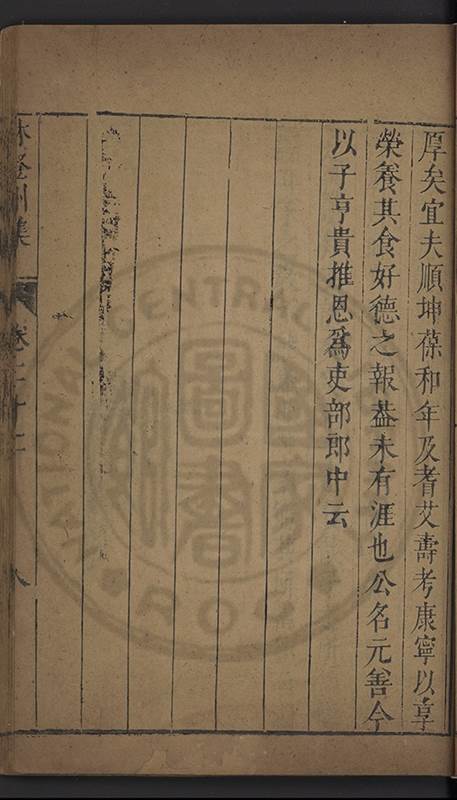 厚矣宜夫順坤葆和年及耆艾壽考康寧以享
榮養其食好德之報葢未有涯也公名元善今
以子亨貴推恩爲吏部郎中云
林登州集
卷二十二
八